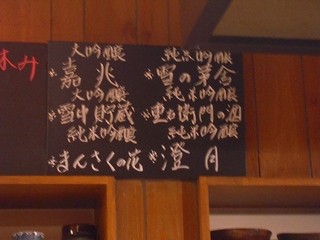 休み
大吟醸
*嘉兆
大吟醸
*雪中貯蔵
純米吟醸
*まんさくの花
純米吟醸
*雪の茅舎
純米吟醸
の酒
純米吟醸
*澄月